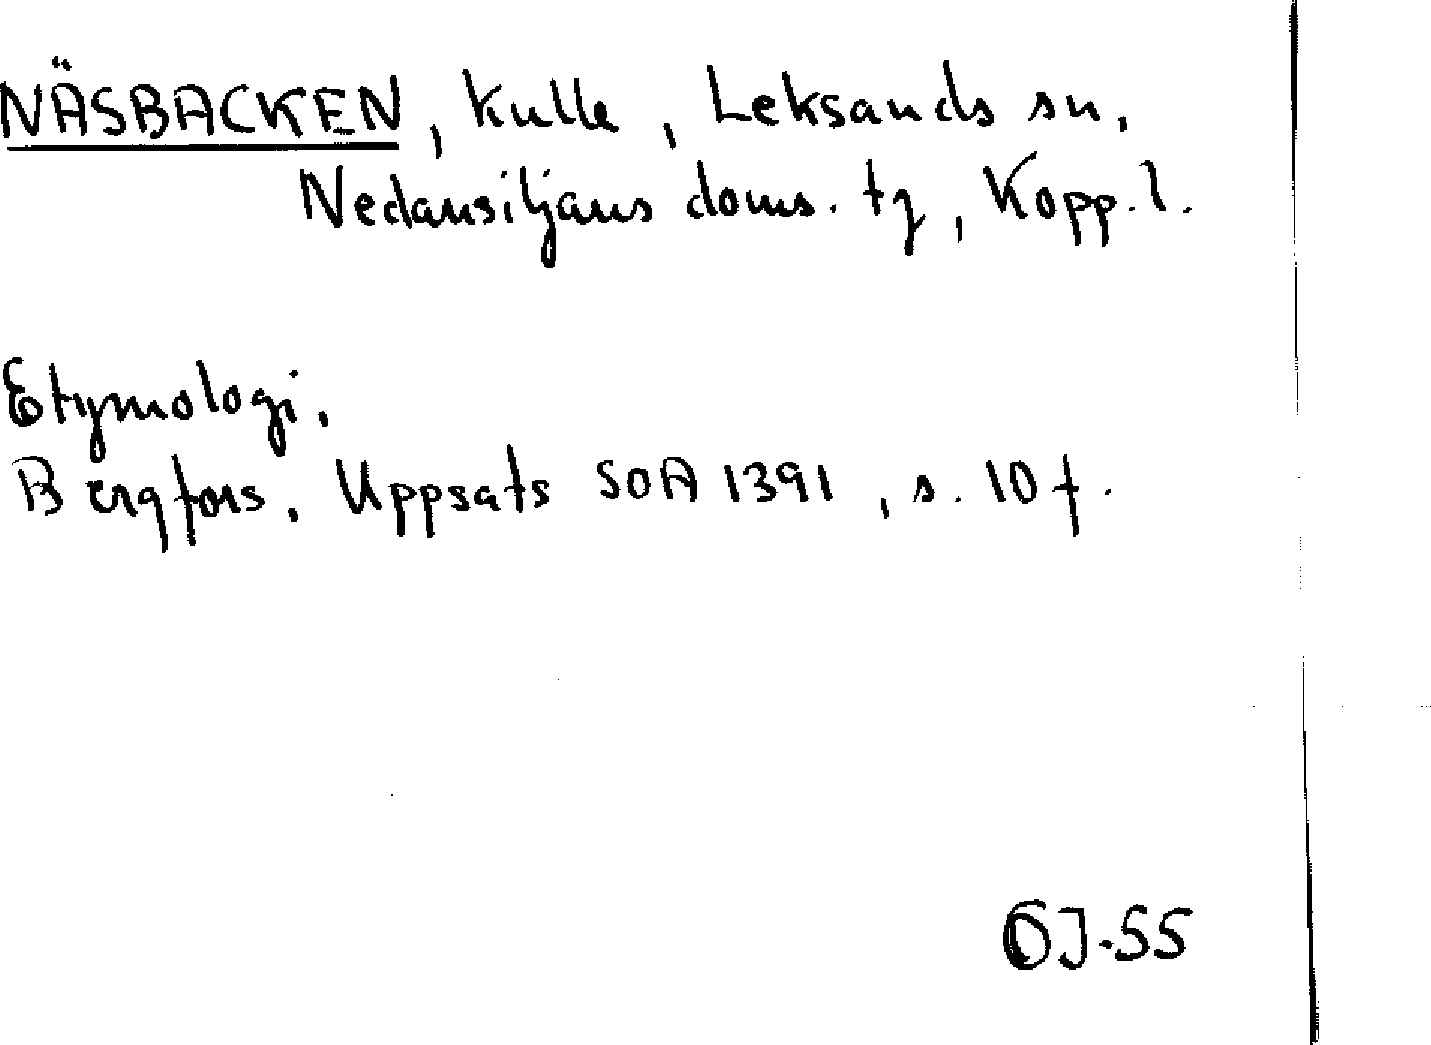 NÄSBACKEN, kulle, Leksands sn,
Nedansiljans doms. tg, Kopp. l.
Etymologi.
Bergfors. Uppsats SOA 1391, s. 10 f.
ÖJ-55